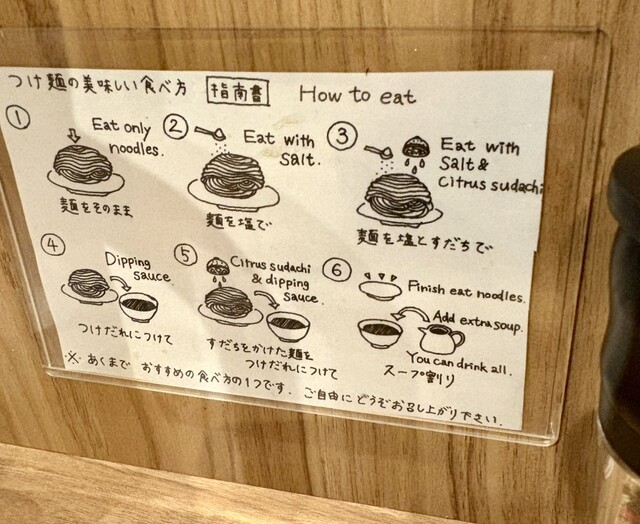 つけ麺の美味しい食べ方 指南書 How to eat
① Eat only
noodles.
麺をそのまま
② Eat with
Salt.
麺を塩で
③ Eat with
Salt &
Citrus sudachi
麺を塩とすだちで
④ Dipping
sauce.
つけだれにつけて
⑤ Citrus sudachi
& dipping
sauce.
すだちをかけた麺を
つけだれにつけて
⑥ Finish eat noodles.
Add extra soup.
You can drink all.
スープ割り
※ あくまで おすすめの食べ方の1つです. ご自由にどうぞお召し上がり下さい.